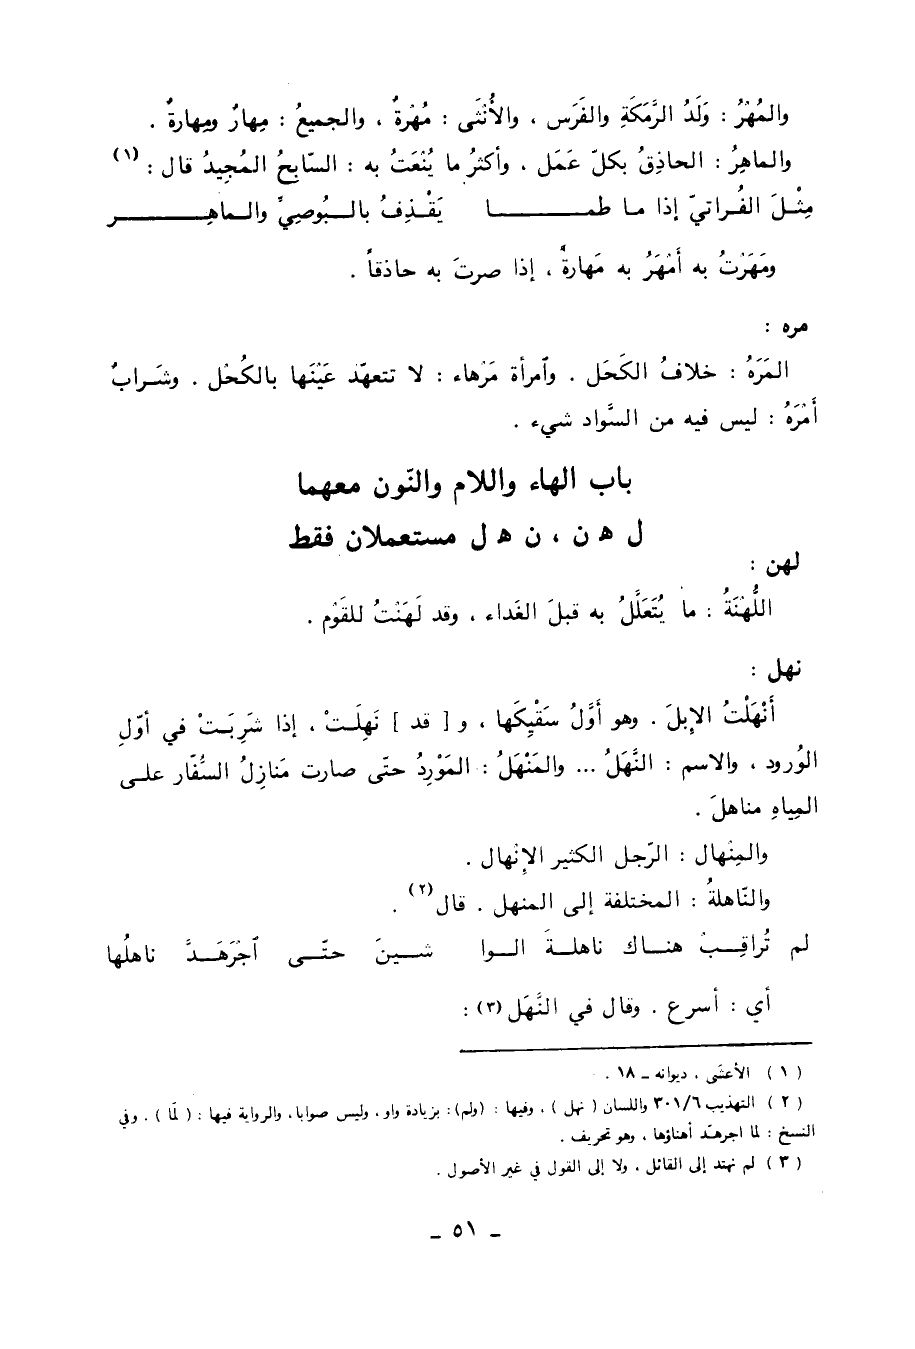 والمُهْرُ : وَلَدُ الرَّمَكَةِ والفَرَس ، والأُنْثَى : مُهْرةٌ ، والجميعُ : مِهارٌ ومِهارةٌ .
والماهِرُ : الحاذِقُ بكلّ عَمَل . وأكثرُ ما يُنْعَتُ به : السّابحُ المُجِيدُ قال : (١)
مِثْلَ الفُراتيّ إذا ما طمـــا يَقْذِفُ بالبُوصِيِّ والماهِــر
ومَهَرْتُ به أَمْهَرُ به مَهارةً ، إذا صرتَ به حاذقاً .
مره :
المَرَهُ : خلافُ الكَحَل . وٱمرأة مَرْهاء : لا تتعهّد عَيْنَها بالكُحْل . وشَرابٌ
أَمْرَهُ : ليس فيه من السَّواد شيء .
باب الهاء واللام والنّون معهما
ل ه ن ، ن ه ل مستعملان فقط
لهن :
اللُّهْنَةُ : ما يُتَعَلَّلُ به قبلَ الغَداء ، وقد لَهَنْتُ للقَوْم .
نهل :
أَنْهَلْتُ الإبلَ . وهو أَوَّلُ سَقْيِكَها ، و [ قد ] نَهِلَتْ ، إذا شَرِبَتْ في أوّلِ
الوُرود ، والاسم : النَّهَلُ ... والمَنْهَلُ : المَوْرِدُ حتّى صارت مَنازِلُ السُّفّار على
المِياهِ مناهلَ .
والمِنْهال : الرّجل الكثير الإنْهال .
والنّاهلةُ : المختلفة إلى المنهل . قال (٢) .
لم تُراقِبْ هناك ناهلةَ الوا شينَ حتّى ٱجْرَهَدَّ ناهلُها
أي : أسرع . وقال في النَّهَل (٣) :
( ١ ) الأعشَى ، ديوانه ـ ١٨ .
( ٢ ) التهذيب ٣٠١/٦ واللسان ( نهل ) ، وفيها : (ولم) : بزيادة واو ، وليس صوابا، والرواية فيها : ( لمّا ) . وفي
النسخ : لما اجرهدّ أهناؤها ، وهو تحريف .
( ٣ ) لم نهتد إلى القائل ، ولا إلى القول في غير الأصول .
ـ ٥١ ـ